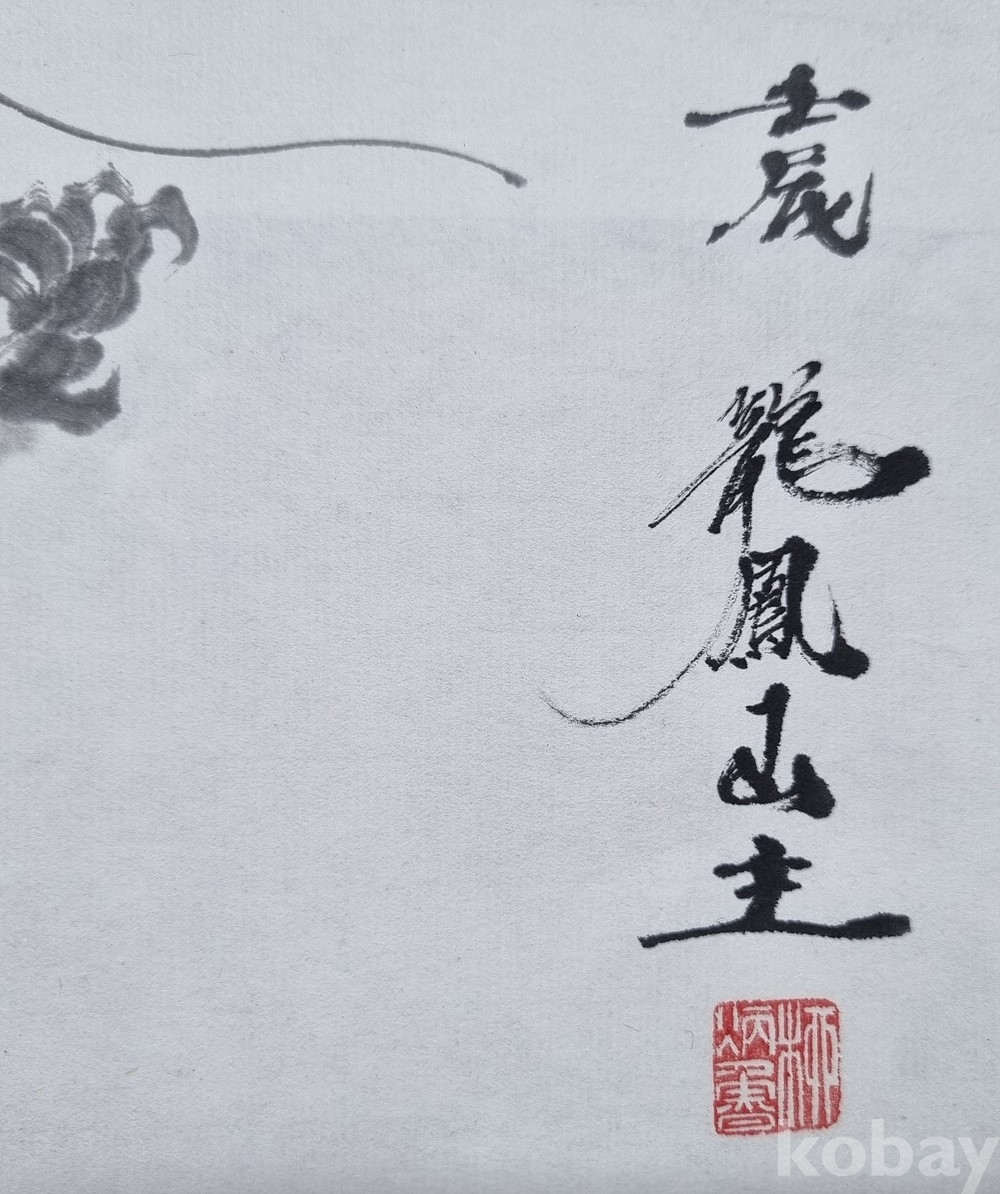 壬辰
龍鳳山主
柳炳
kobay